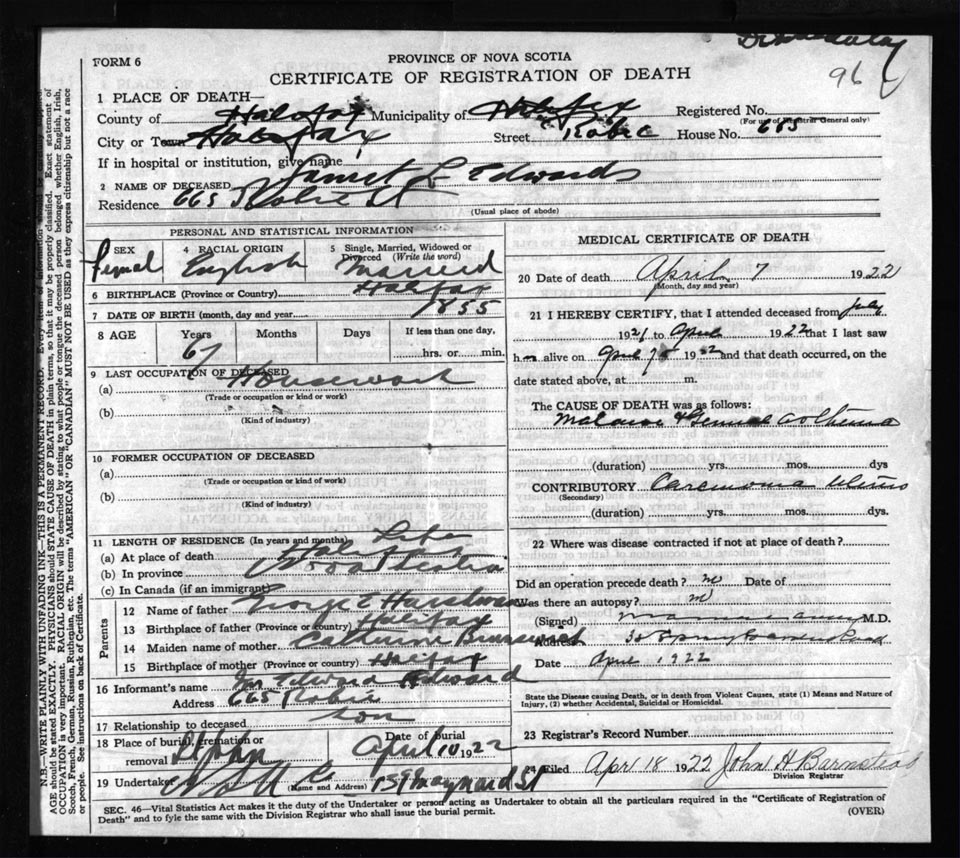 96
FORM 6
PROVINCE OF NOVA SCOTIA
CERTIFICATE OF REGISTRATION OF DEATH
1 PLACE OF DEATH—
County of Halifax Municipality of Halifax Registered No.
(For use of Registrar General only)
City or Town Halifax Street Robie House No. 665
If in hospital or institution, give name
2 NAME OF DECEASED L Edwards
Residence 665 Robie St
(Usual place of abode)
PERSONAL AND STATISTICAL INFORMATION
SEX 4 RACIAL ORIGIN 5 Single, Married, Widowed or Divorced (Write the word)
Femal English Married
6 BIRTHPLACE (Province or Country) Halifax
7 DATE OF BIRTH (month, day and year) 1855
8 AGE Years Months Days If less than one day,
67 hrs. or min.
9 LAST OCCUPATION OF DECEASED
(a) Housework
(Trade or occupation or kind or work)
(b)
(Kind of industry)
10 FORMER OCCUPATION OF DECEASED
(a)
(Trade or occupation or kind or work)
(b)
(Kind of industry)
11 LENGTH OF RESIDENCE (In years and months) Life
(a) At place of death Halifax
(b) In province Nova Scotia
(c) In Canada (if an immigrant)
Parents
12 Name of father George
13 Birthplace of father (Province or country) Halifax
14 Maiden name of mother Catherine
15 Birthplace of mother (Province or country) Halifax
16 Informant's name Edward Edward
Address 665 Robie
17 Relationship to deceased son
18 Place of burial, cremation or removal Date of burial April 10 1922
19 Undertaker (Name and Address) 159 Maynard St
MEDICAL CERTIFICATE OF DEATH
20 Date of death April 7 1922
(Month, day and year)
21 I HEREBY CERTIFY, that I attended deceased from July
1921 to April 1922 that I last saw
h alive on April 7 1922 and that death occurred, on the
date stated above, at m.
The CAUSE OF DEATH was as follows:
(duration) yrs. mos. dys
CONTRIBUTORY Carcinoma Uterus
(Secondary)
(duration) yrs. mos. dys.
22 Where was disease contracted if not at place of death?
Did an operation precede death? no Date of
Was there an autopsy? no
(Signed) M.D.
Address
Date April 1922
State the Disease causing Death, or in death from Violent Causes, state (1) Means and Nature of
Injury, (2) whether Accidental, Suicidal or Homicidal.
23 Registrar's Record Number
Filed Apr 18 1922 John H Barnstead
Division Registrar
SEC. 46—Vital Statistics Act makes it the duty of the Undertaker or person acting as Undertaker to obtain all the particulars required in the "Certificate of Registration of
Death" and to fyle the same with the Division Registrar who shall issue the burial permit.
(OVER)
N.B.—WRITE PLAINLY WITH UNFADING INK—THIS IS A PERMANENT RECORD. Every item of information should be carefully supplied.
AGE should be stated EXACTLY. PHYSICIANS should STATE CAUSE OF DEATH in plain terms, so that it may be properly classified. Exact statement of
OCCUPATION is very important. RACIAL ORIGIN will be described by stating to what people or tongue the deceased person belonged whether English, Irish,
Scotch, French, German, Russian, Ruthenian, etc. The terms "AMERICAN" or "CANADIAN" MUST NOT BE USED as they express citizenship but not a race
or people. See instructions on back of Certificate.